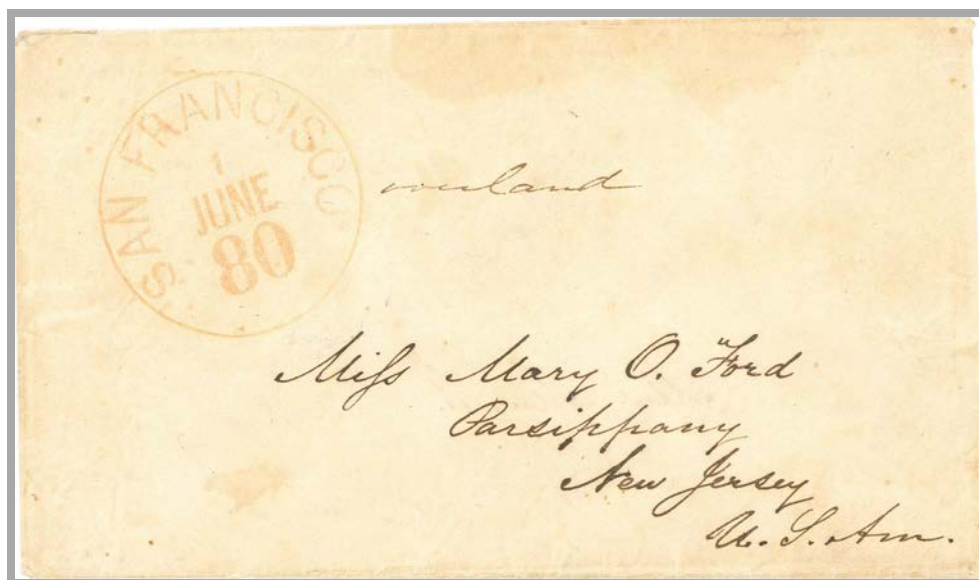 SAN FRANCISCO
1
JUNE
80
overland
Miss Mary O. Ford
Parsippany
New Jersey
U.S. Am.